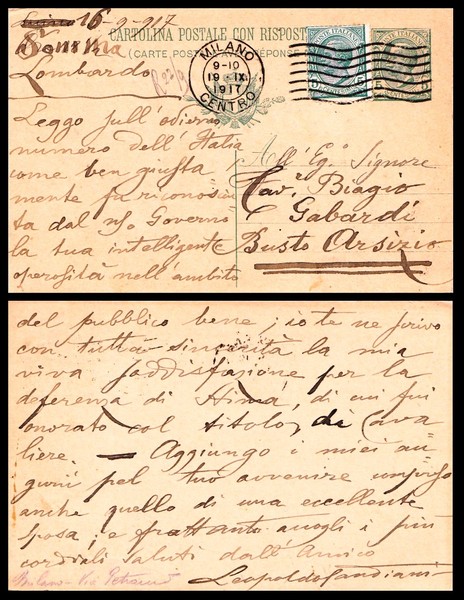 16-9-917
Lombardo
CARTOLINA POSTALE CON RISPOSTA
MILANO
9-10
19·IX
1917
CENTRO
POSTE ITALIANE
Leggo sull'odierno
numero dell'Italia
come ben giusta
mente fu riconosciu
ta dal nso Governo
la tua intelligente
operosità nell'ambito
All'Egº Signore
Cavre Biagio
Gabardi
Busto Arsizio
del pubblico bene; io te ne scrivo
con tutta sincerità la mia
viva soddisfazione per la
deferenza di stima, di cui fui
onorato col titolo di Cava
liere. — Aggiungo i miei au-
guri pel tuo avvenire
anche quello di una eccellente
sposa; e frattanto accogli i più
cordiali saluti dall'Amico
Leopoldo Landiani
Milano - Via